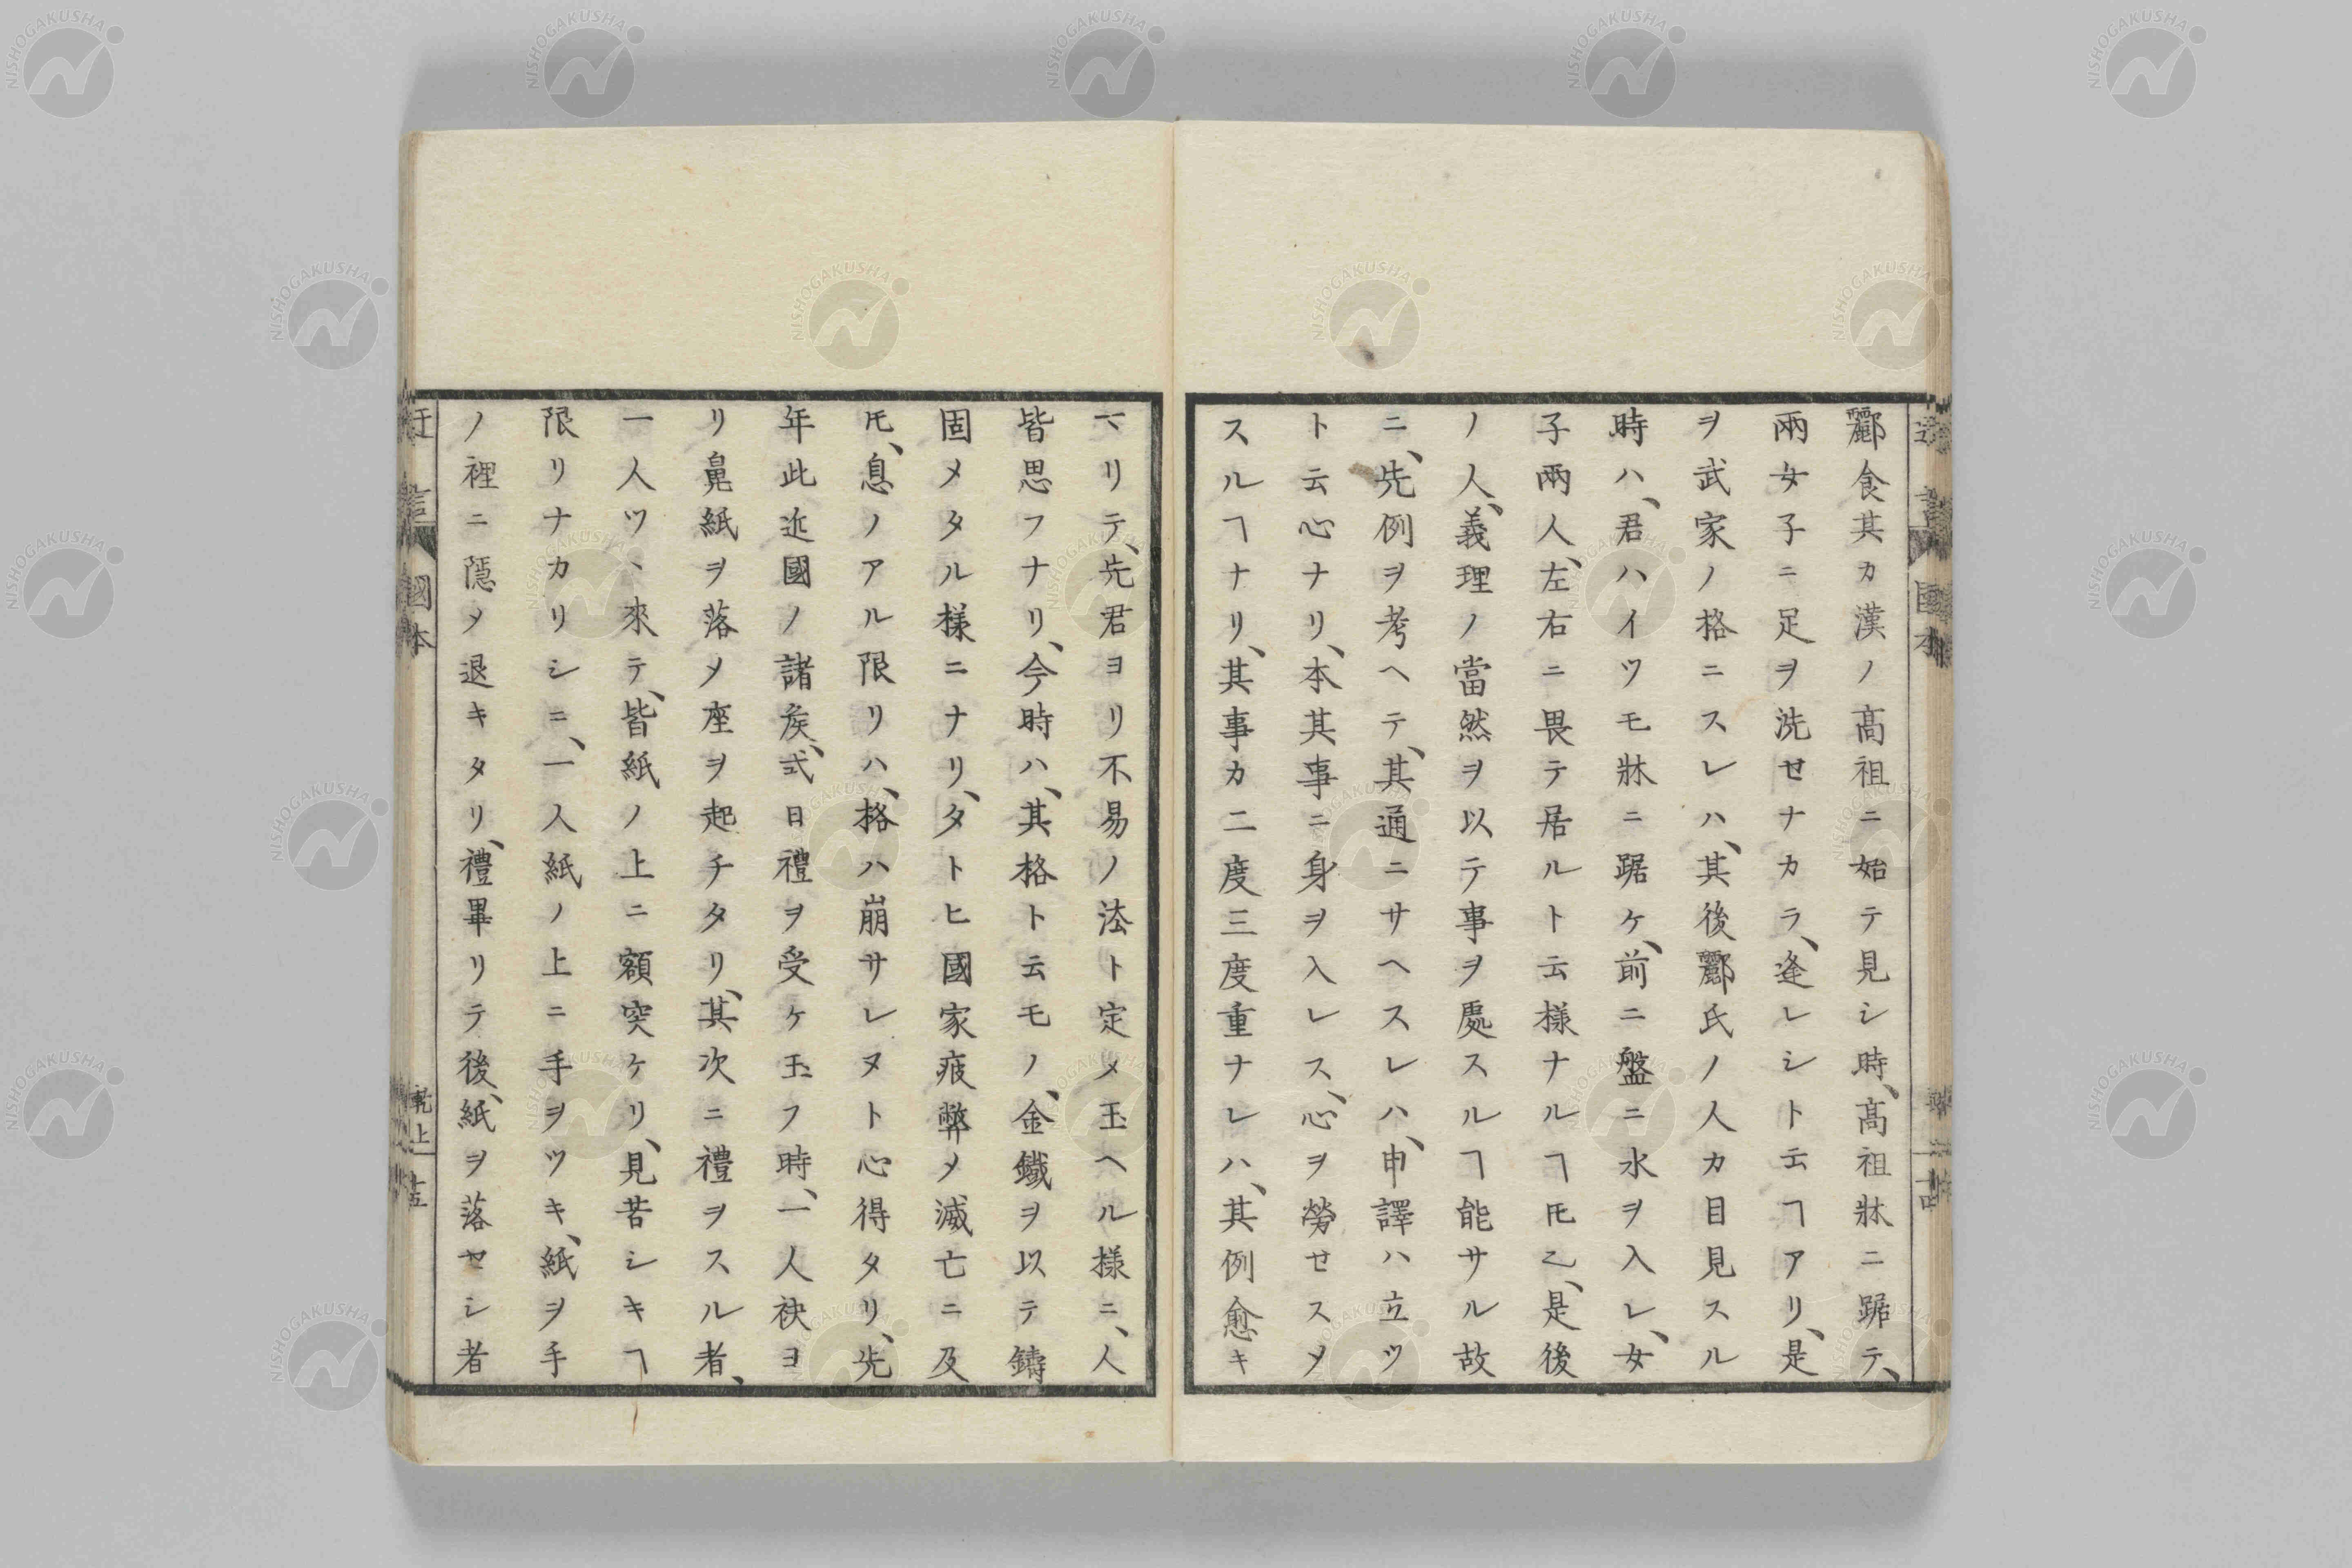 酈食其カ漢ノ髙祖ニ始テ見シ時、髙祖牀ニ踞テ、
兩女子ニ足ヲ洗セナカラ、逢レシト云ヿアリ、是
ヲ武家ノ格ニスレハ、其後酈氏ノ人カ目見スル
時ハ、君ハイツモ牀ニ踞ケ、前ニ盤ニ水ヲ入レ、女
子兩人、左右ニ畏テ居ルト云様ナルヿ𪜈乙、是後
ノ人、義理ノ當然ヲ以テ事ヲ處スルヿ能サル故
ニ、先例ヲ考ヘテ、其通ニサヘスレハ、申譯ハ立ツ
ト云心ナリ、本其事ニ身ヲ入レス、心ヲ勞セスメ
スルヿナリ、其事カ二度三度重ナレハ、其例愈キ
マリテ、先君ヨリ不易ノ法ト定メ玉ヘル様ニ、人
皆思フナリ、今時ハ、其格ト云モノ、金鐵ヲ以テ鑄
固メタル様ニナリ、タトヒ國家疲弊メ滅亡ニ及
𪜈、息ノアル限リハ、格ハ崩サレヌト心得タリ、先
年此近國ノ諸矦、式日禮ヲ受ケ玉フ時、一人袂ヨ
リ鼻紙ヲ落メ座ヲ起チタリ、其次ニ禮ヲスル者、
一人ツヽ來テ、皆紙ノ上ニ額突ケリ、見苦シキヿ
限リナカリシニ、一人紙ノ上ニ手ヲツキ、紙ヲ手
ノ裡ニ隱メ退キタリ、禮畢リテ後、紙ヲ落セシ者
國本
乾上